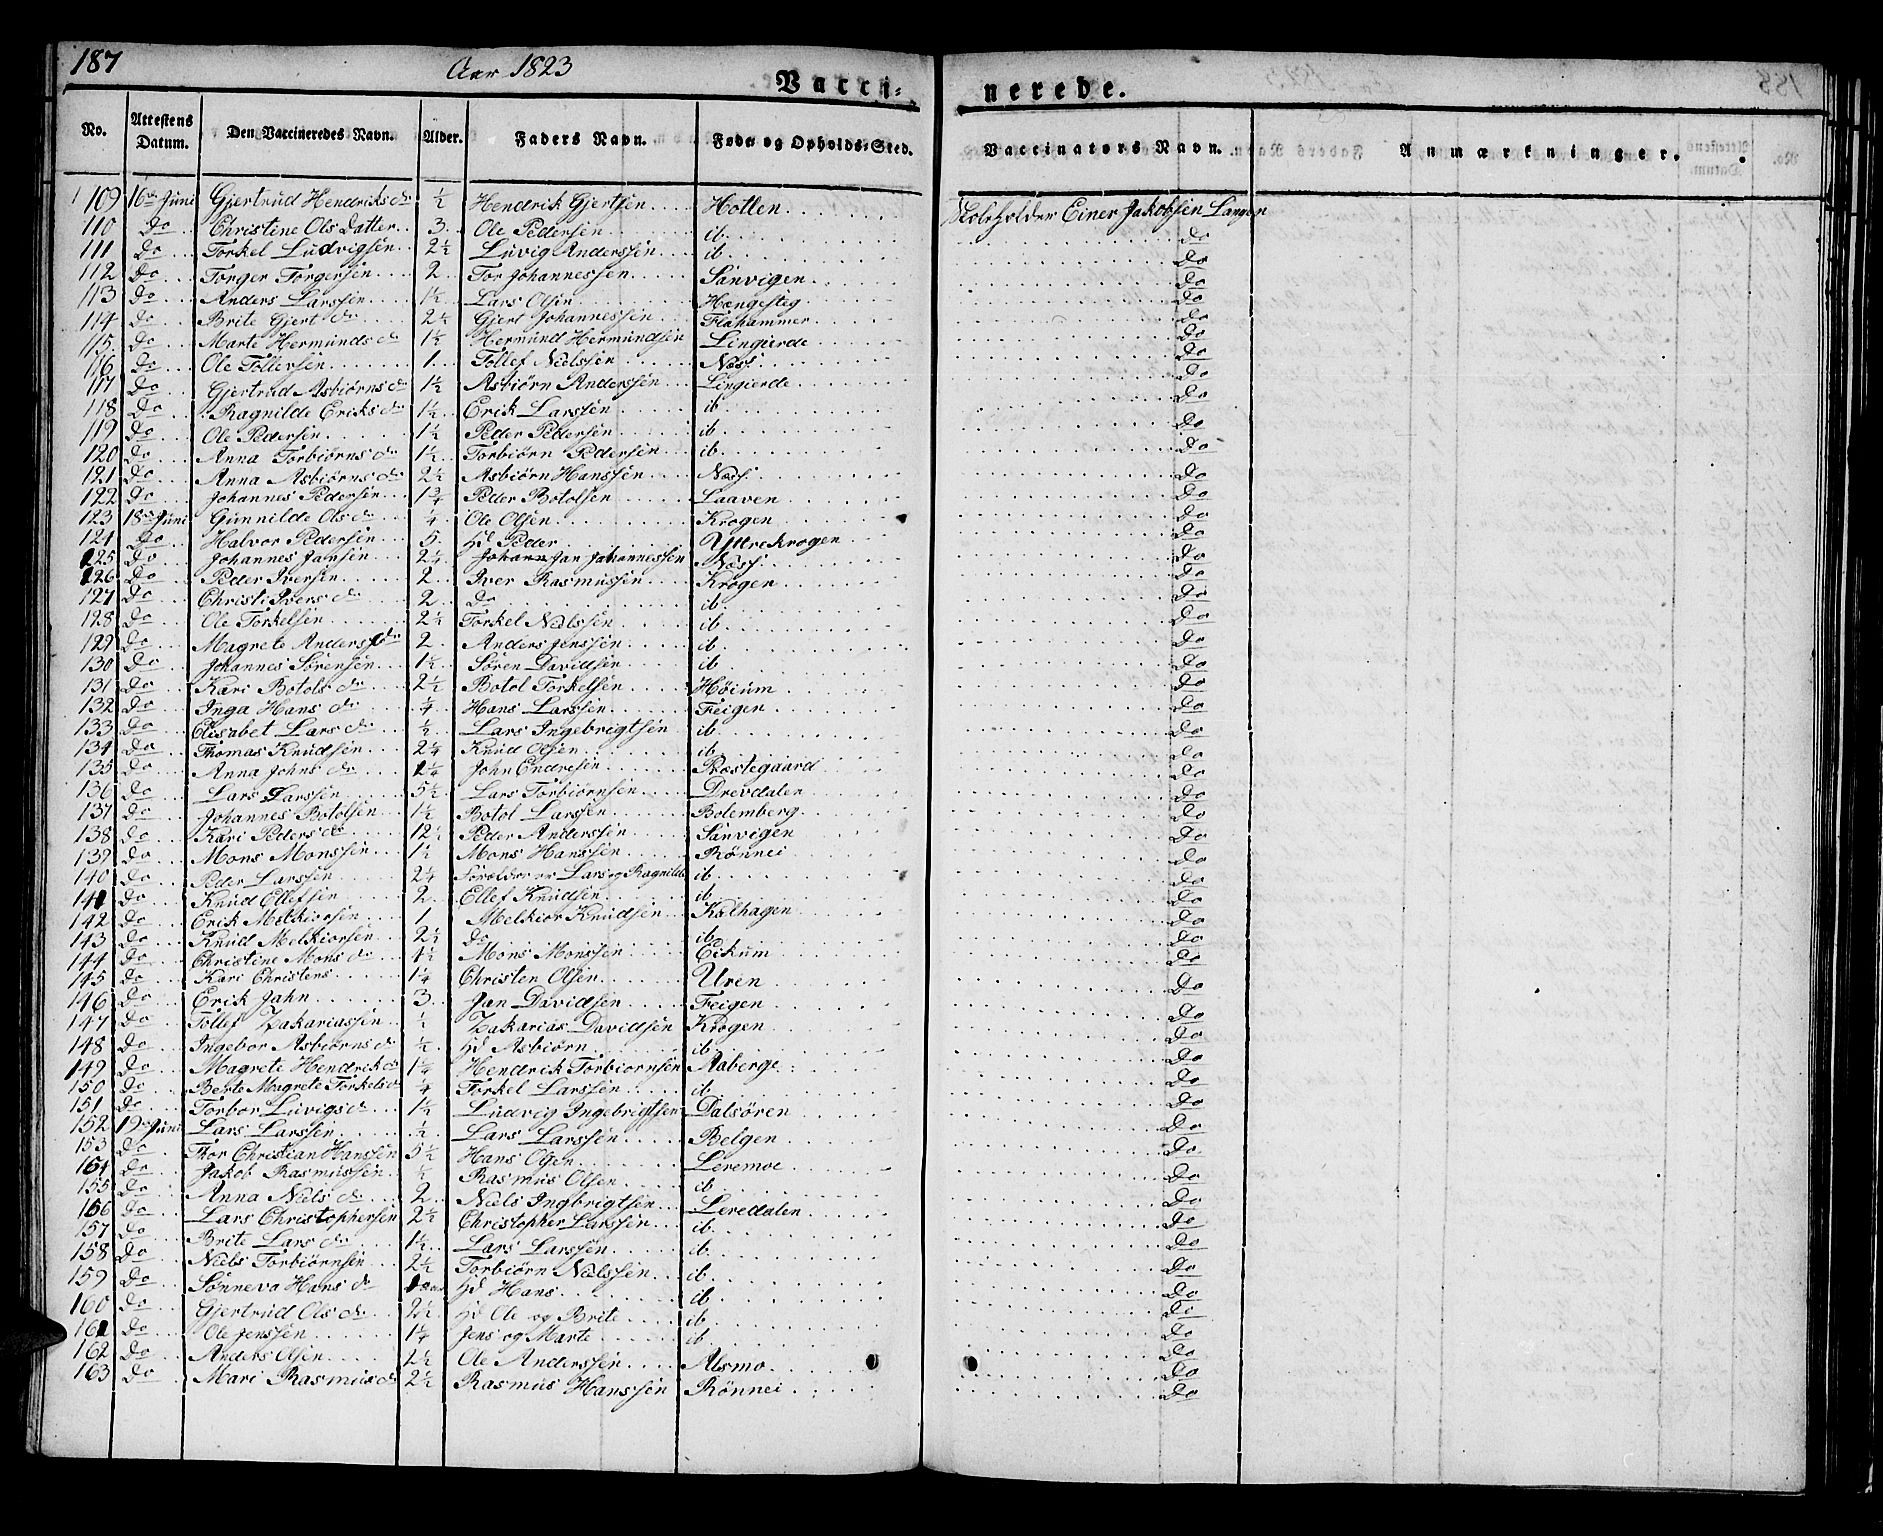 187 Aar 1823 Vacci- nerede.
No. Attestens Datum. Den Vaccineredes Navn. Alder. Faders Navn. Føde- og Opholds-Sted. Vaccinators Navn. Anmærkninger.
109 16de Juni Gjertrud Hendriks dr ½ Hendrik Gjertsen Hotlen Skoleholder Einer Jakobsen Langen
110 Do Christine Ols Datter 3 Ole Pedersen ib. Do
111 Do Torkel Ludvigsen 2½ Luvig Anderssen ib Do
112 Do Torger Torgersen 2 Tor Johannessen Sanvigen Do
113 Do Anders Larssen 1½ Lars Olsen Hængesteg Do
114 Do Brite Gjert dr 2½ Gjert Johannessen Flahammer Do
115 Do Marte Hermunds dr 1½ Hermund Hermundsen Lingierde Do
116 Do Ole Tollefsen 1 Tollef Nielssen Næss Do
117 Do Gjertrud Asbiørns dr 1½ Asbiørn Anderssen Lingierde Do
118 Do Ragnilde Eriks dr 1½ Erik Larssen ib Do
119 Do Ole Pedersen 1½ Peder Pedersen ib. Do
120 Do Anna Torbiørns dr 1½ Torbiørn Pedersen ib. Do
121 Do Anna Asbiørns dr 2½ Asbiørn Hanssen Næss Do
122 Do Johannes Pedersen 1¾ Peder Botolsen Laaven Do
123 18de Juni Gunnilde Ols dr ¼ Ole Olsen Krogen Do
124 Do Halvor Pedersen 5 Hd Peder Yttrekrogen Do
125 Do Johannes Jansen 2¼ Johann Jan Johannessen Næss Do
126 Do Peder Iversen 2 Iver Rasmussen Krogen Do
127 Do Christi Ivers dr 2 Do ib. Do
128 Do Ole Torkelsen 2½ Torkel Nielssen ib Do
129 Do Magrete Anders dr 2 Anders Jenssen ib Do
130 Do Johannes Sørensen 1½ Søren Davidsen ib Do
131 Do Kari Botols dr 2½ Botol Torkelsen Høium Do
132 Do Inga Hans dr ¼ Hans Larssen Feigen Do
133 Do Elisabet Lars dr ½ Lars Ingebrigtsen ib Do
134 Do Thomas Knudsen 2¼ Knud Olsen ib. Do
135 Do Anna Johns dr 1¼ John Endresen Præstegaard Do
136 Do Lars Larssen 5½ Lars Torbiørnsen Drevdalen Do
137 Do Johannes Botolsen 1½ Botol Larssen Bolemberg Do
138 Do Kari Peders dr 12½ Peder Anderssen Sanvigen Do
139 Do Mons Monssen 1½ Mons Hanssen Rønnei Do
140 Do Peder Larssen 2¼ Forældre er Lars og Ragnilde ib Do
141 Do Knud Ellefsen 2 Ellef Knudsen ib Do
142 Do Erik Melkiorsen 1 Melkior Knudsen Kalhagen Do
143 Do Knud Melkiorsen 2½ do ib. Do
144 Do Christine Mons dr 4½ Mons Monssen Eikum Do
145 Do Kari Christens 1¼ Christen Olsen Uren Do
146 Do Erik Jahn 3 Jan Davidsen Feigen Do
147 Do Tollef Zakariassen ½ Zakarias Davidsen Krogen Do
148 Do Ingebor Asbiørns dr ½ Hd Asbiørn ib. Do
149 Do Magrete Hendrik dr 1¼ Hendrik Torbiornsen Aaberge Do
150 Do Berte Magrete Torkels dr ¼ Torkel Larssen ib. Do
151 Do Torbor Luvigs dr 1½ Ludvig Ingebrigtsen Dalsøren Do
152 19de Juni Lars Larssen ½ Lars Larssen Bolgen Do
153 Do Thor Christian Hanssen 5½ Hans Olsen Leremoe Do
154 Do Jakob Rasmussen ½ Rasmus Olsen ib Do
155 Do Anna Niels dr 2 Niels Ingbrigtsen ib. Do
156 Do Lars Christophersen 2½ Christopher Larssen Leredalen Do
157 Do Brite Lars dr 1½ Lars Larssen ib. Do
158 Do Niels Torbiørnsen 2½ Torbiørn Nielssen ib. Do
159 Do Sønneva Hans dr Hd Hans ib. Do
160 Do Gjertrud Ols dr 2½ Hd Ole og Brite ib. Do
161 Do Ole Jenssen 1¼ Jens og Marte ib Do
162 Do Anders Olsen 2½ Ole Anderssen Alsmo Do
163 Do Mari Rasmus dr 2½ Rasmus Hanssen Rønnei Do